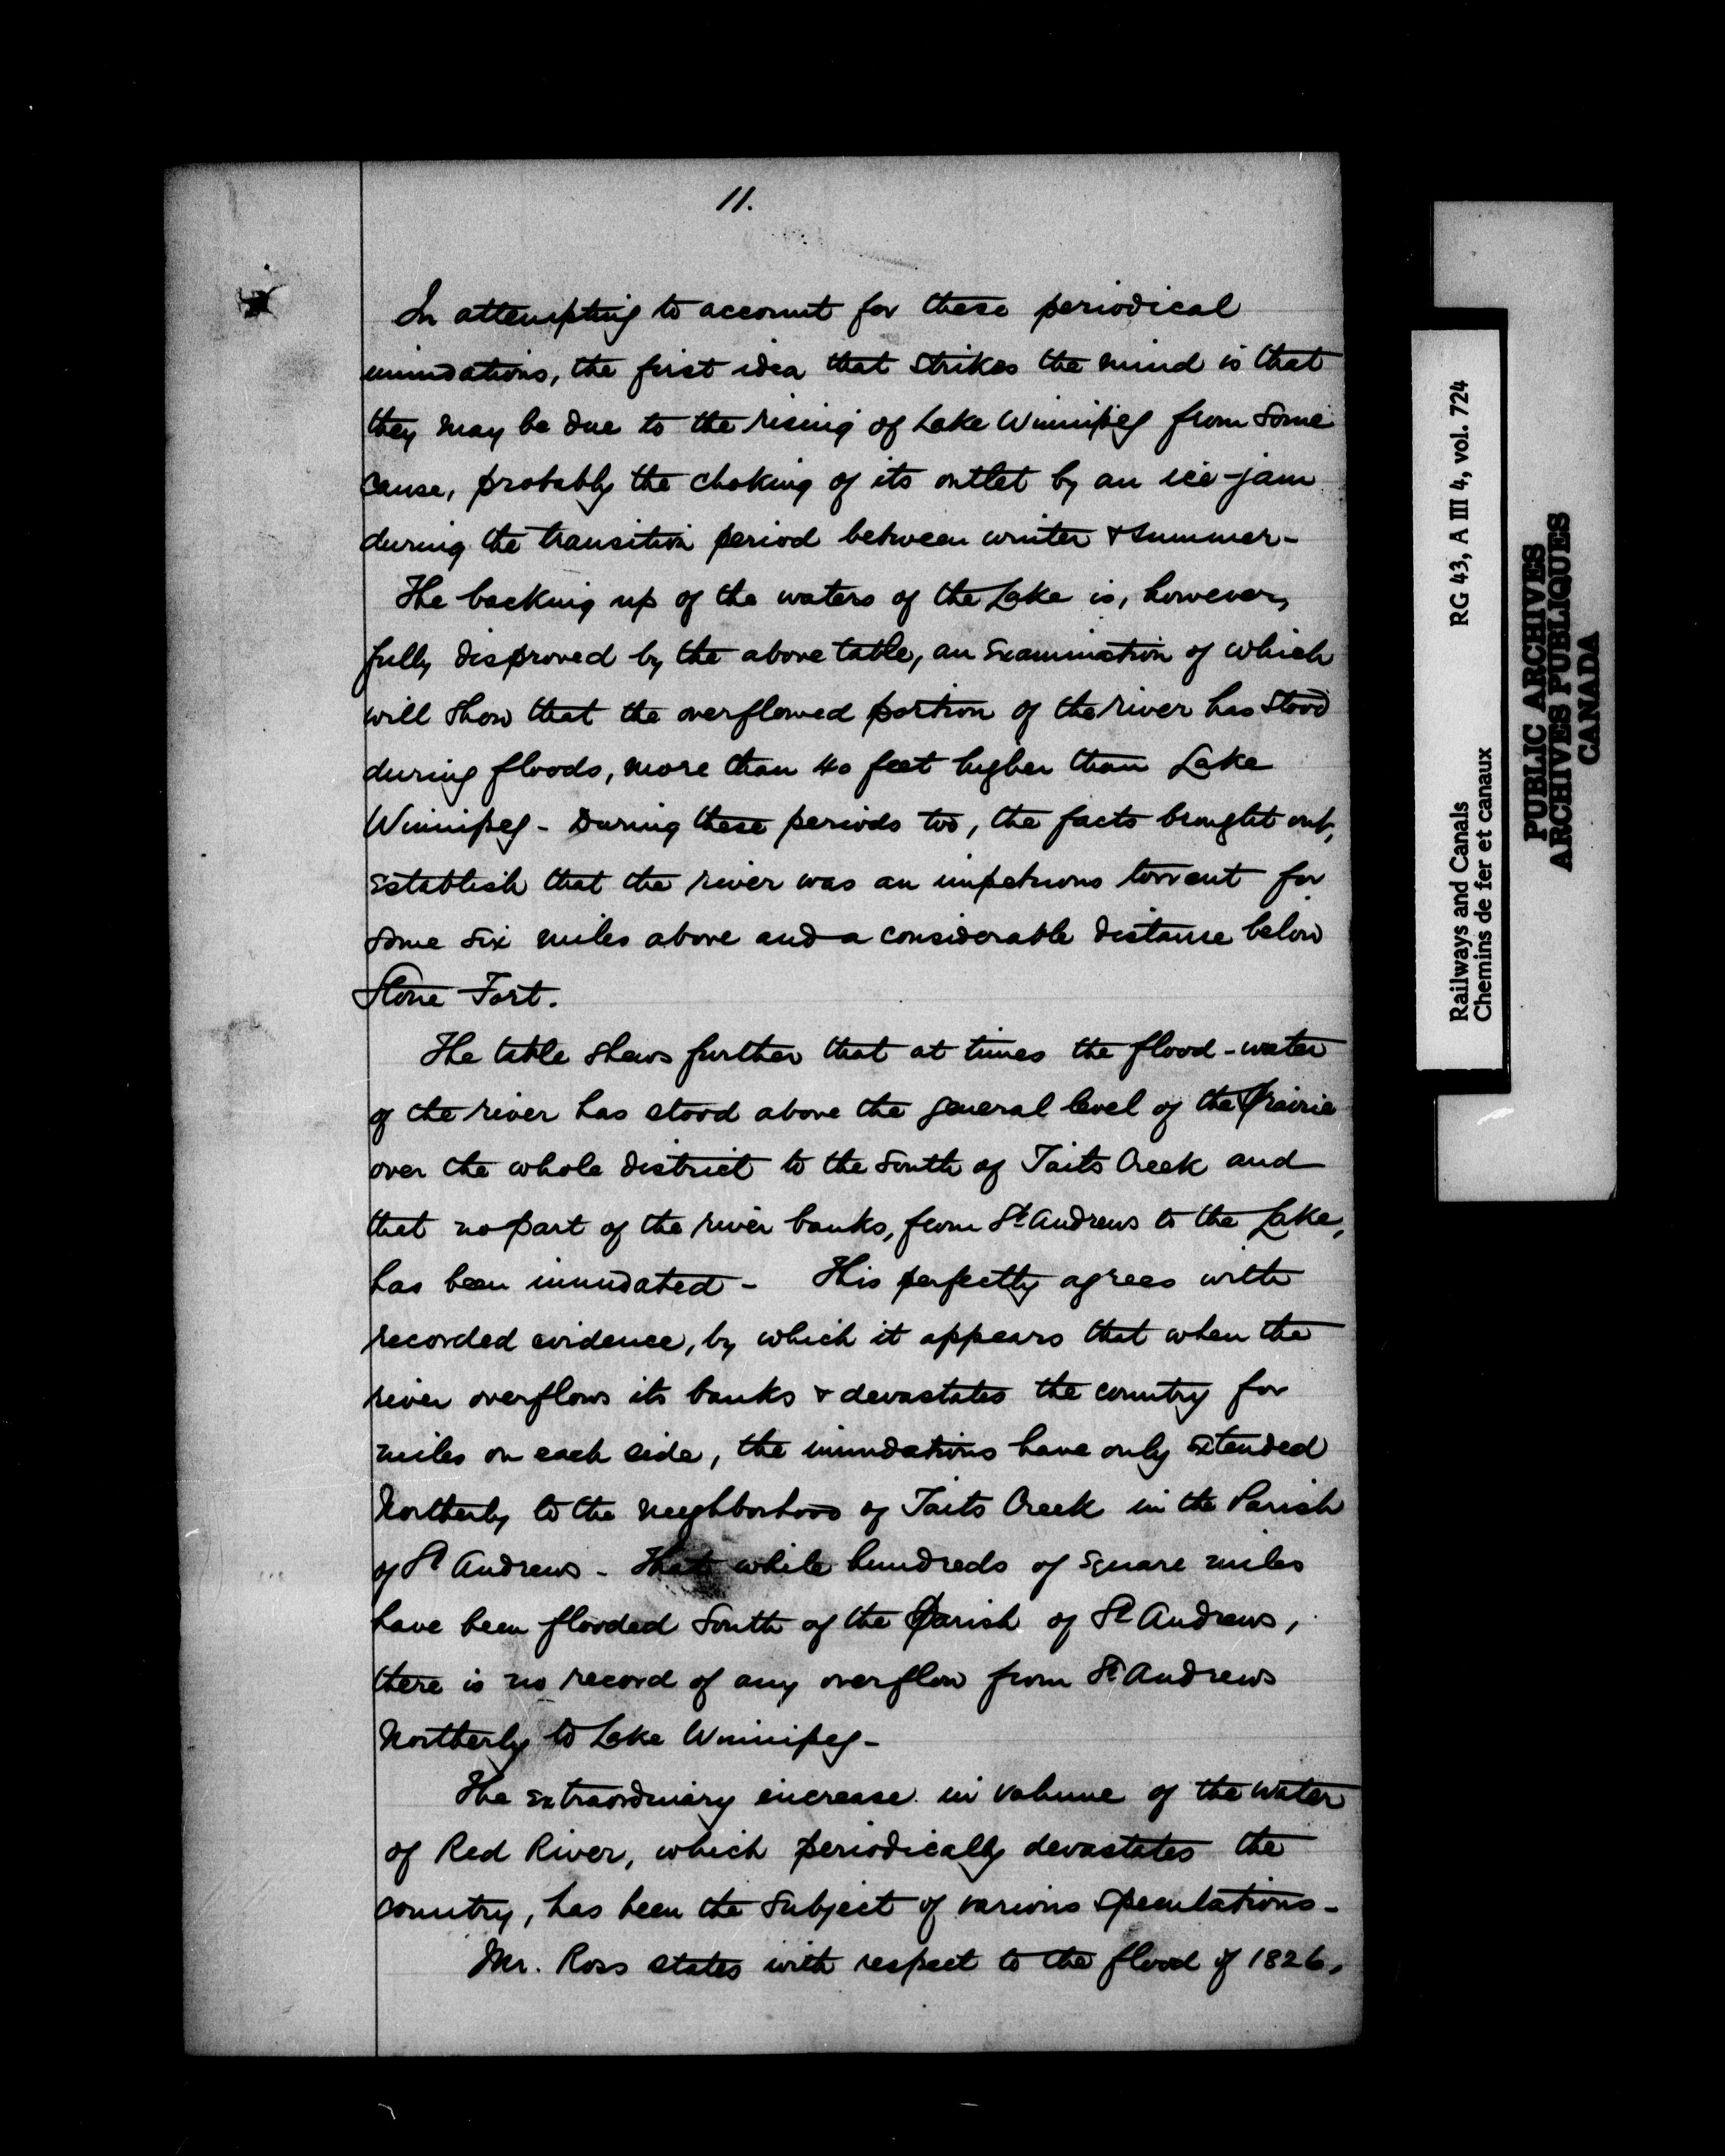 11.
In attempting to account for these periodical
inundations, the first idea that strikes the mind is that
they may be due to the rising of Lake Winnipeg from some
cause, probably the choking of its outlet by an ice-jam
during the transition period between winter & summer-
The backing up of the waters of the Lake is, however,
fully disproved by the above table, an examination of which
will show that the overflowed portion of the river has stood
during floods, more than 40 feet higher than Lake
Winnipeg - During these periods too, the facts brought out,
establish that the river was an impetuous torrent for
some six miles above and a considerable distance below
Stone Fort.
The table shews further that at times the flood-water
of the river has stood above the general level of the Prairie
over the whole district to the South of Taits Creek and
that no part of the river banks, from St Andrews to the Lake,
has been inundated - This perfectly agrees with
recorded evidence, by which it appears that when the
river overflows its banks & devastates the country for
miles on each side, the inundations have only extended
Northerly to the neighborhood of Taits Creek in the Parish
of St Andrews - That while hundreds of square miles
have been flooded South of the Parish of St Andrews,
there is no record of any overflow from St Andrews
Northerly to Lake Winnipeg-
The extraordinary increase in volume of the water
of Red River, which periodically devastates the
country, has been the subject of various speculations-
Mr. Ross states with respect to the flood of 1826,
Railways and Canals RG 43, A III 4, vol. 724
Chemins de fer et canaux
PUBLIC ARCHIVES
ARCHIVES PUBLIQUES
CANADA